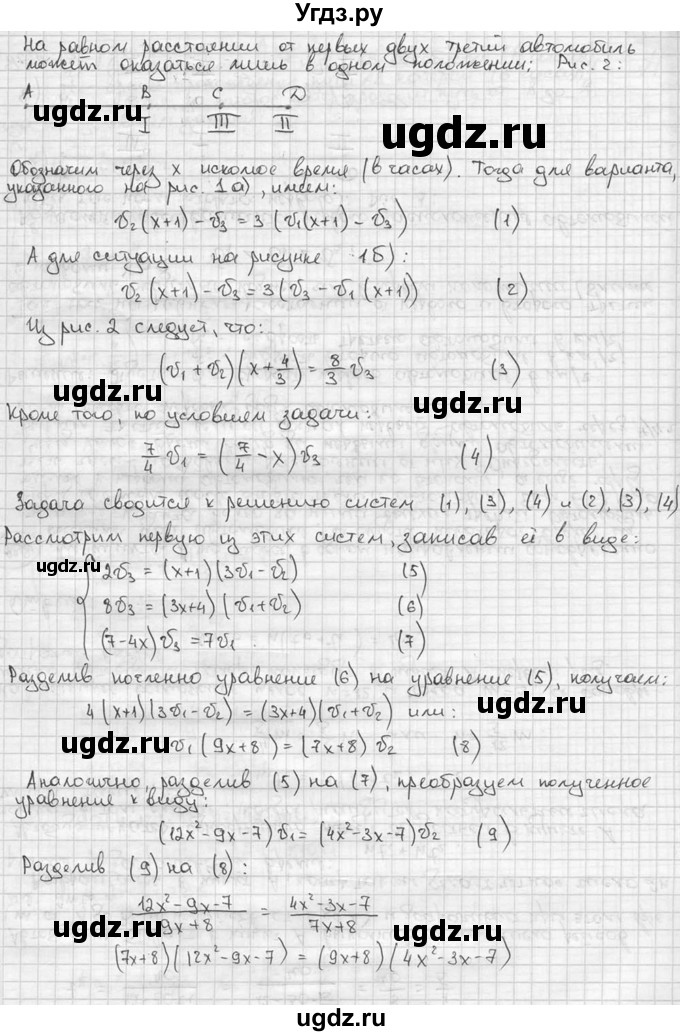 Угдз.ру
На равном расстоянии от первых двух третий автомобиль
может оказаться лишь в одном положении; Рис. 2:
A B C D
I III II
ugdz.ru
ugdz.ru
Обозначим через x искомое время (в часах). Тогда для варианта,
указанного на рис. 1а), имеем:
v₂(x+1) - v₃ = 3(v₁(x+1) - v₃) (1)
А для ситуации на рисунке 1б):
v₂(x+1) - v₃ = 3(v₃ - v₁(x+1)) (2)
ugdz.ru
Из рис. 2 следует, что:
(v₁ + v₂)(x + 4/3) = 8/3 v₃ (3)
ugdz.ru
ugdz.ru
Кроме того, по условиям задачи:
7/4 v₁ = (7/4 - x)v₃ (4)
Задача сводится к решению систем (1), (3), (4) и (2), (3), (4)
Рассмотрим первую из этих систем, записав её в виде:
2v₃ = (x+1)(3v₁ - v₂) (5)
ugdz.ru
ugdz.ru
8v₃ = (3x+4)(v₁+v₂) (6)
(7-4x)v₃ = 7v₁ (7)
Разделив почленно уравнение (6) на уравнение (5), получаем:
4(x+1)(3v₁ - v₂) = (3x+4)(v₁+v₂) или:
ugdz.ru
ugdz.ru
v₁(9x+8) = (7x+8)v₂ (8)
Аналогично, разделив (5) на (7), преобразуем полученное
уравнение к виду:
(12x²-9x-7)v₁ = (4x²-3x-7)v₂ (9)
Разделив (9) на (8):
(12x²-9x-7)/(9x+8) = (4x²-3x-7)/(7x+8)
ugdz.ru
ugdz.ru
(7x+8)(12x²-9x-7) = (9x+8)(4x²-3x-7)
ugdz.ru